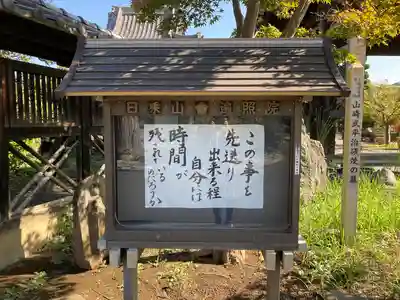 日乗山 遍照院
この事を
先送り
出来る程
自分には
時間が
残されて
いる
のだろうか
山崎
の墓